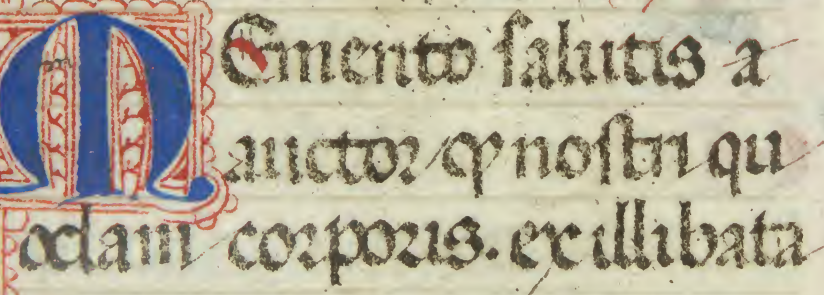 MEmento salutis a
auctor qͥ nostri qu
odam corporis. ex illibata